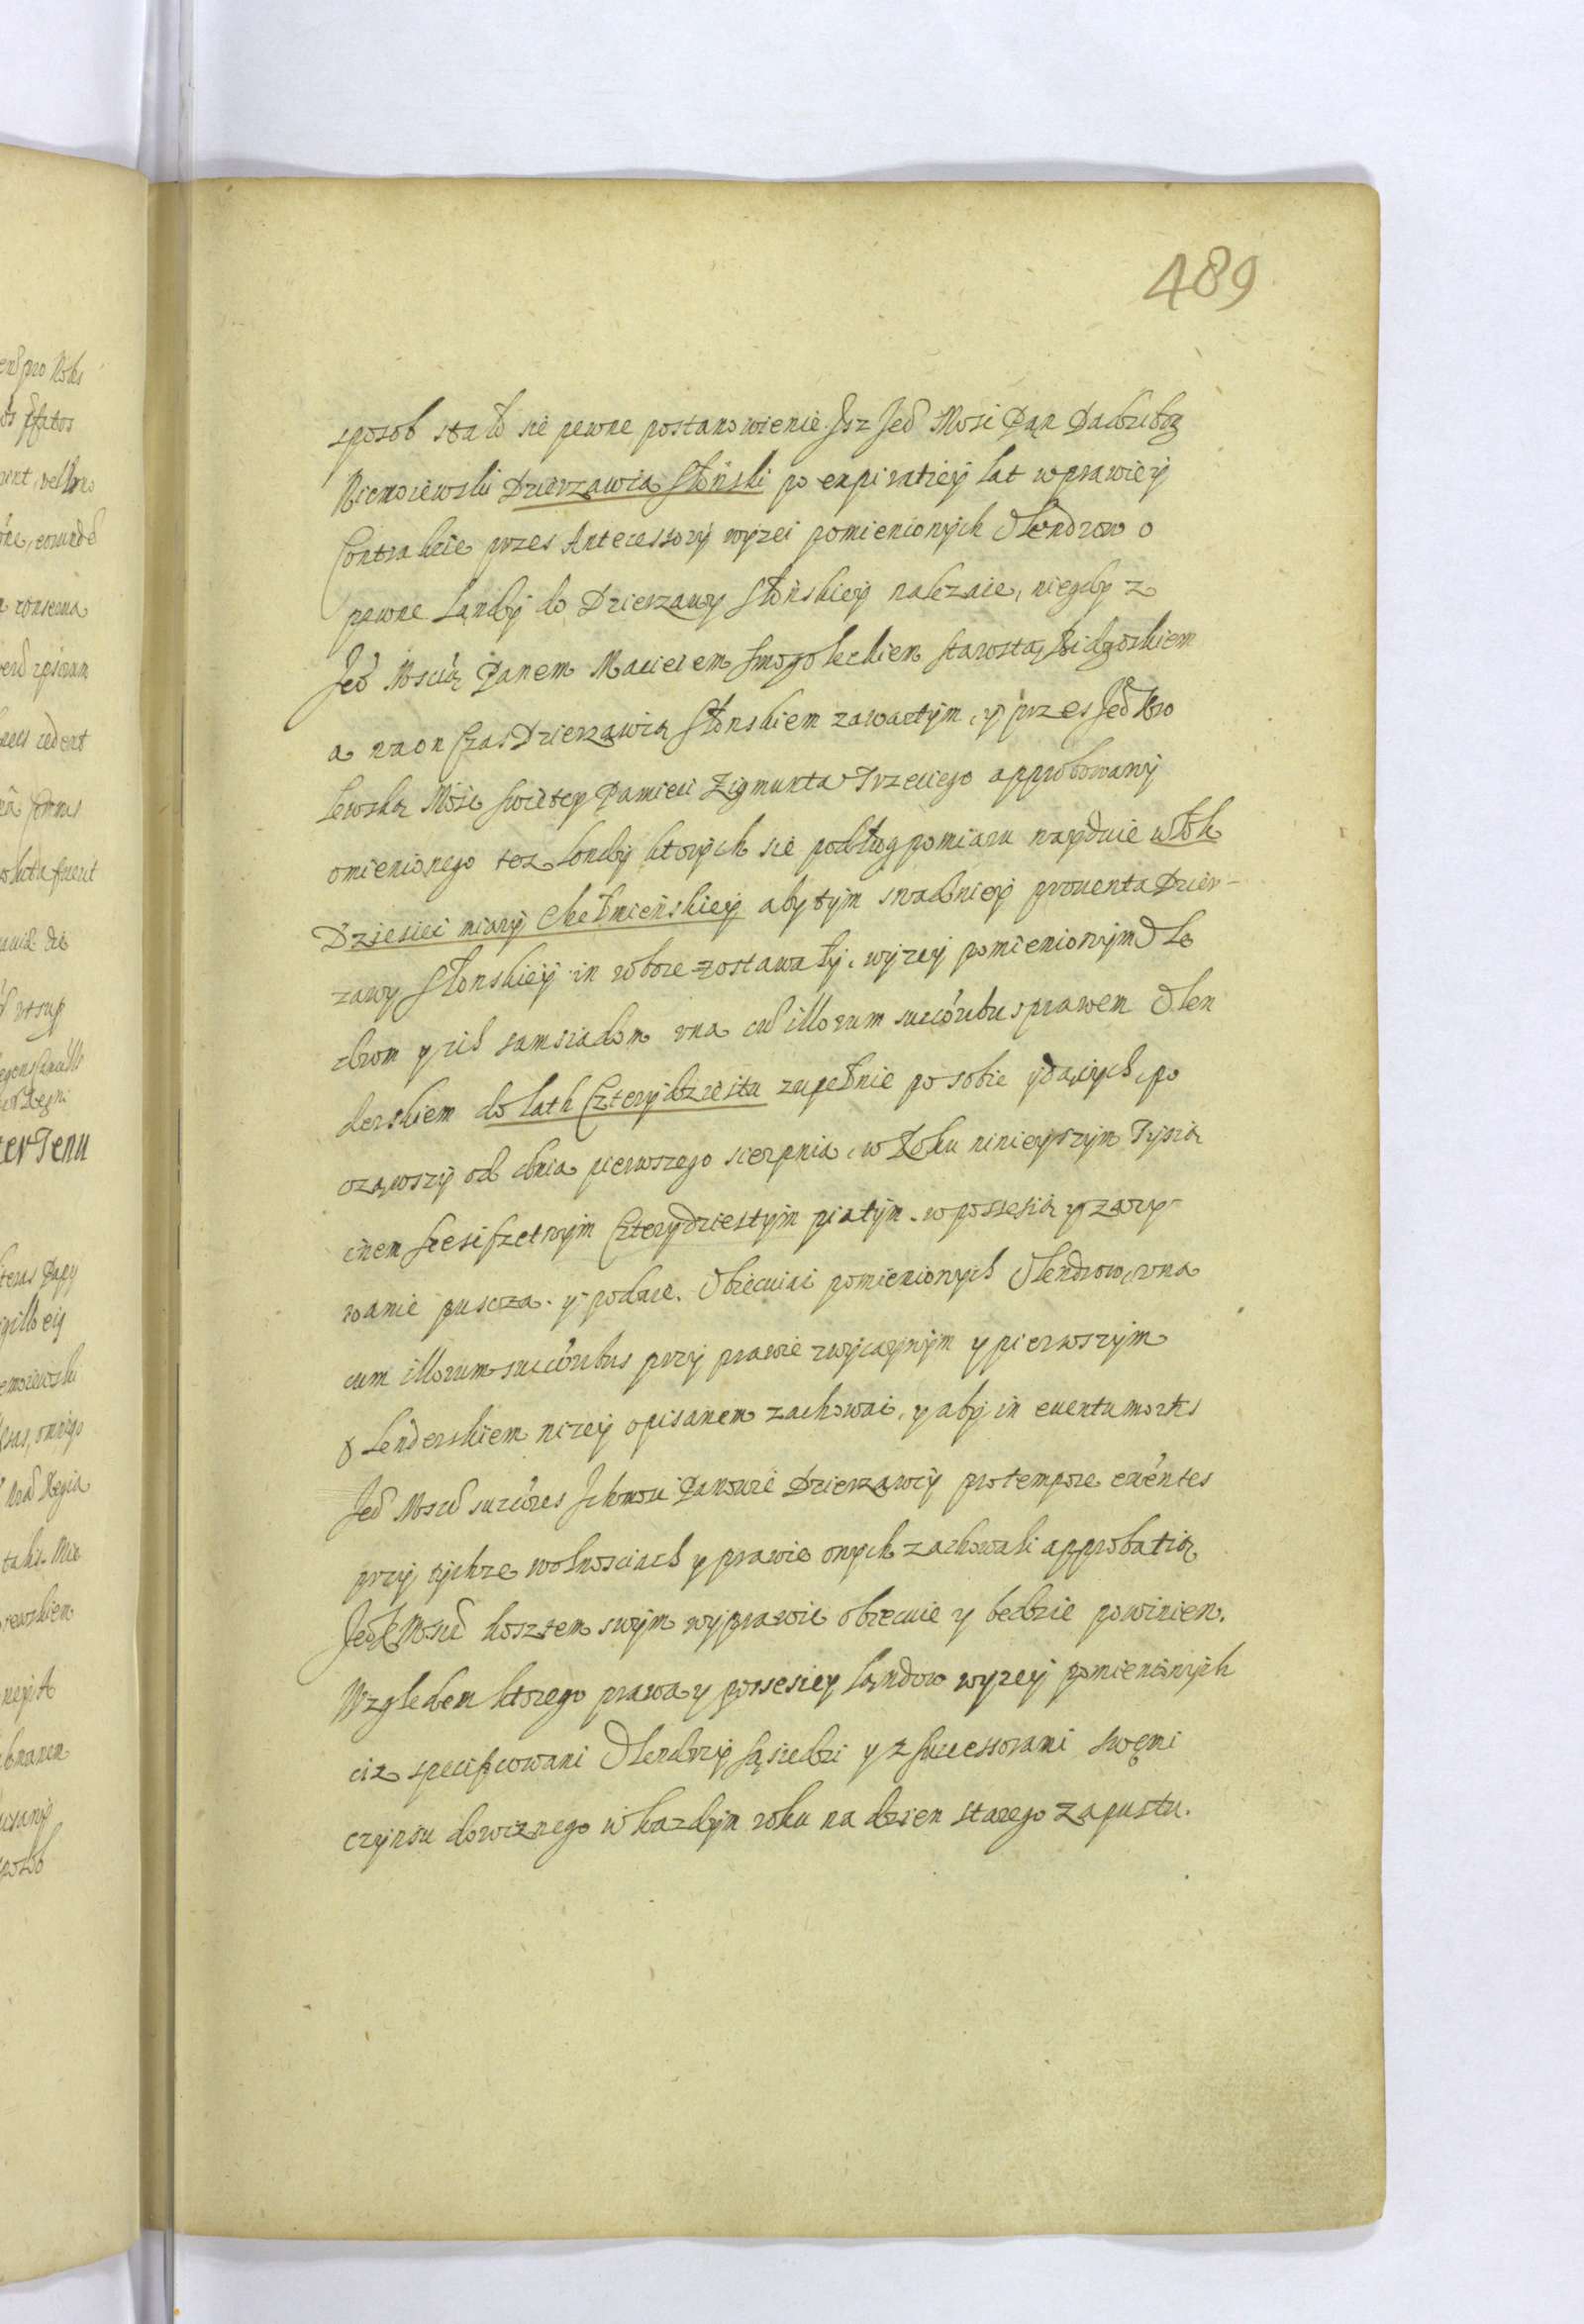 489
sposob stało sie pewne postanowienie Jsz Jeo Mosi Pąn Dadzibog
Niemoiewski Dzierzawca Słonski po expiratiey lat w prawie y
Contrakcie przes Antecessory wyzei pomienionych Olendrow o
pewne Lądy do Dzierzawy Słonskiey nalezaie, niegdy z
Jeo Moscią Panem Macieiem Smogoleckiem Starostą Bidgoskiem
a na on Czas Dzierzawcą Słonskiem zawartym, y przes Jeo Kro
lewską Mośc swietey Pamieci Zigmunta Trzeciego approbowany
omienionego tez Londy ktorych sie podług pomiaru naydzie włok
Dziesieci miary Chełmieńskiey aby tym snadniey prouenta Dzier-
zawy Słonskiey in robore zostawały, wyzey pomienionym Ole
drom y ich samsiadom vna cum illorum succoribus prawem Olen
derskiem do lath Czterydziestu zupełnie po sobie ydących, po
cząwszy od dnia pierwszego sierpnia, w Roku ninieyszym Tysią
cnem szesc setnym Czterydziestym piatym. w possesią y zazy-
wanie puscza. y podaie. Obiecuiąc pomienionych Olendrow, vna
cum illorum succoribus przy prawie zwyczaynym y pierwszym
oLenderskiem nizey opisanem zachowac, y aby in euentu mortis
Jeo Mosci succores Ichmosci Panowie Dzierzawcy pro tempore exentes
przy tychze wolnosciach y prawie onych zachowali approbatią
JeoK Mosci kosztem swym wyprawic obiecuie y bedzie powinien.
Wzgledem ktorego prawa y possesiey Lądow wyzey pomienionych
ciz specificowani Olendrzy sąsiedzi y z successorami swemi
czynsu dorocznego w kazdym roku na dzien starego zapustu.